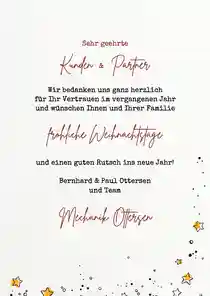 Sehr geehrte
Kunden & Partner
Wir bedanken uns ganz herzlich
für Ihr Vertrauen im vergangenen Jahr
und wünschen Ihnen und Ihrer Familie
fröhliche Weihnachtstage
und einen guten Rutsch ins neue Jahr!
Bernhard & Paul Ottersen
und Team
Mechanik Ottersen